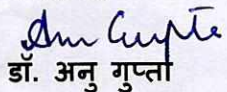 Anu Gupta
डॉ. अनु गुप्ता